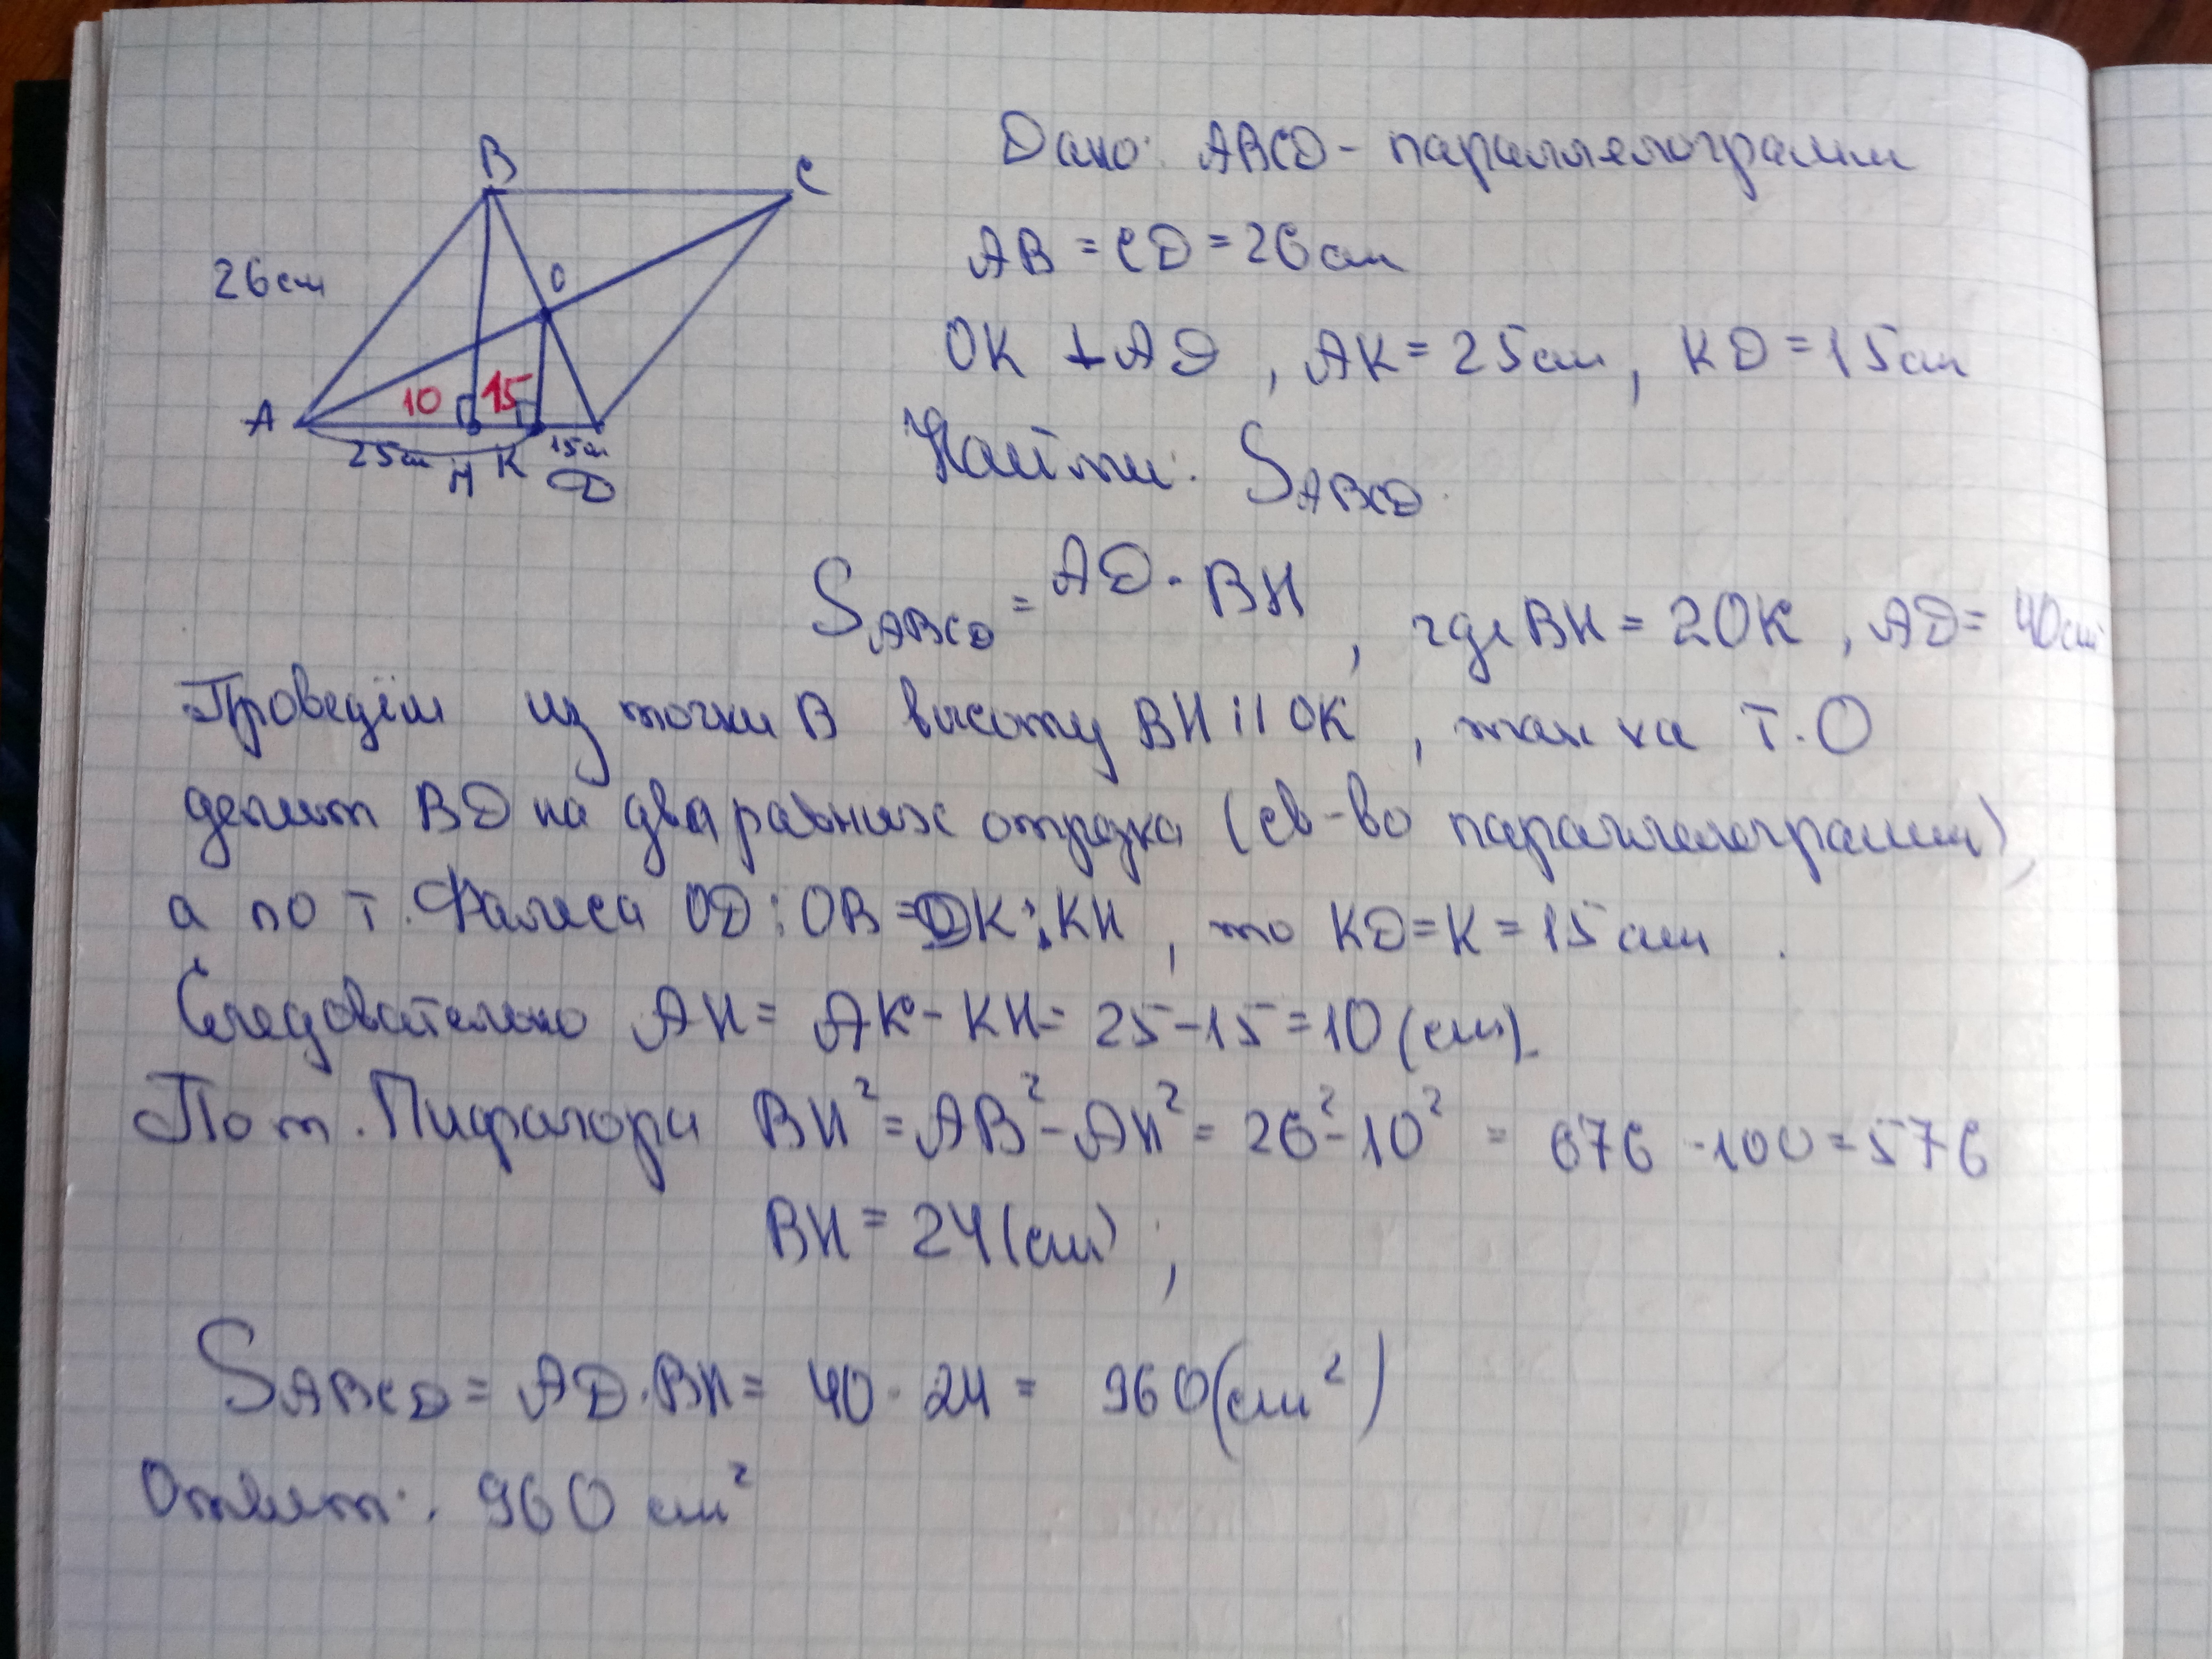 B
C
26 см
O
10
15
A
25см
15см
H
K
D
Дано: ABCD - параллелограмм
AB = CD = 26 см
OK ⊥ AD, AK = 25 см, KD = 15 см
Найти: S ABCD.
S ABCD = AD · BH, где BH = 2OK, AD = 40 см
Проведём из точки B высоту BH || OK, так ка т. O
делит BD на два равных отрезка (св-во параллелограмма),
а по т. Фалеса OD : OB = DK : KH, то KD = K = 15 см.
Следовательно AH = AK - KH = 25 - 15 = 10 (см).
По т. Пифагора BH² = AB² - AH² = 26² - 10² = 676 - 100 = 576
BH = 24 (см);
S ABCD = AD · BH = 40 · 24 = 960 (см²)
Ответ: 960 см²